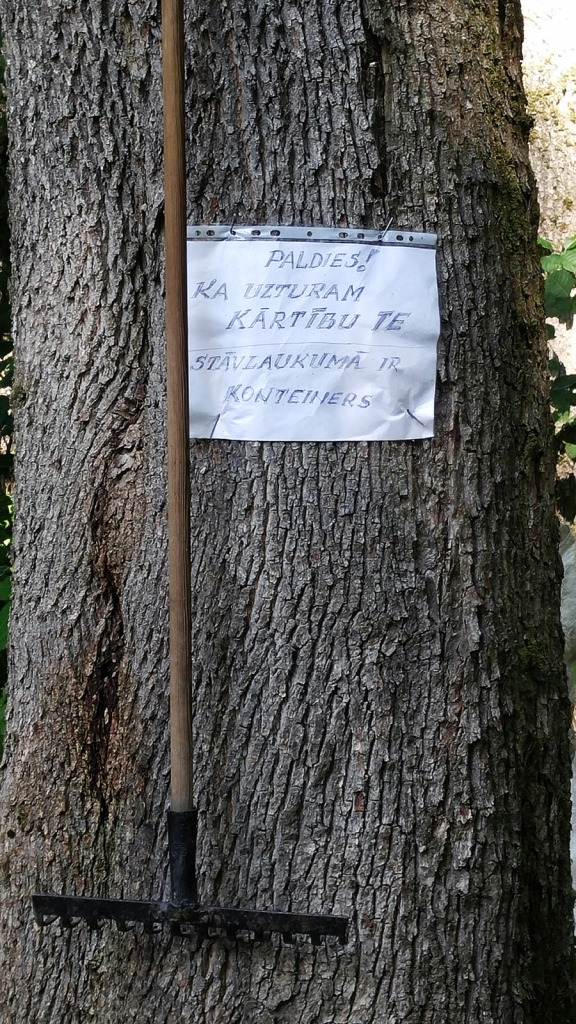 PALDIES!
KA UZTURAM
KĀRTĪBU TE
STĀVLAUKUMĀ IR
KONTEINERS